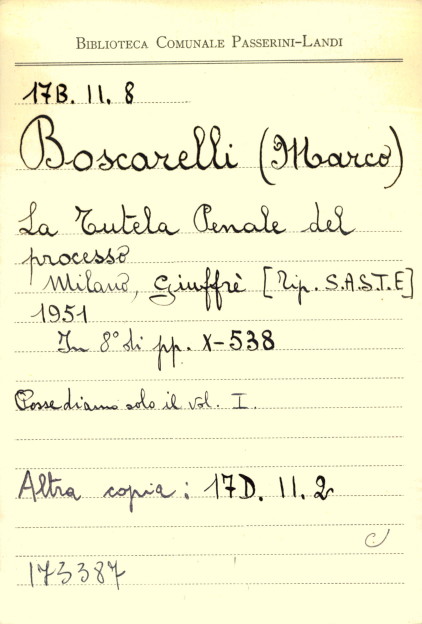 BIBLIOTECA COMUNALE PASSERINI-LANDI
17B. II. 8
Boscarelli (Marco)
La Tutela Penale del
processo
Milano, Giuffrè [Tip. S.A.S.T.E]
1951
In 8° di pp. X-538
Possediamo solo il vol. I.
Altra copia: 17D. II. 2
173387